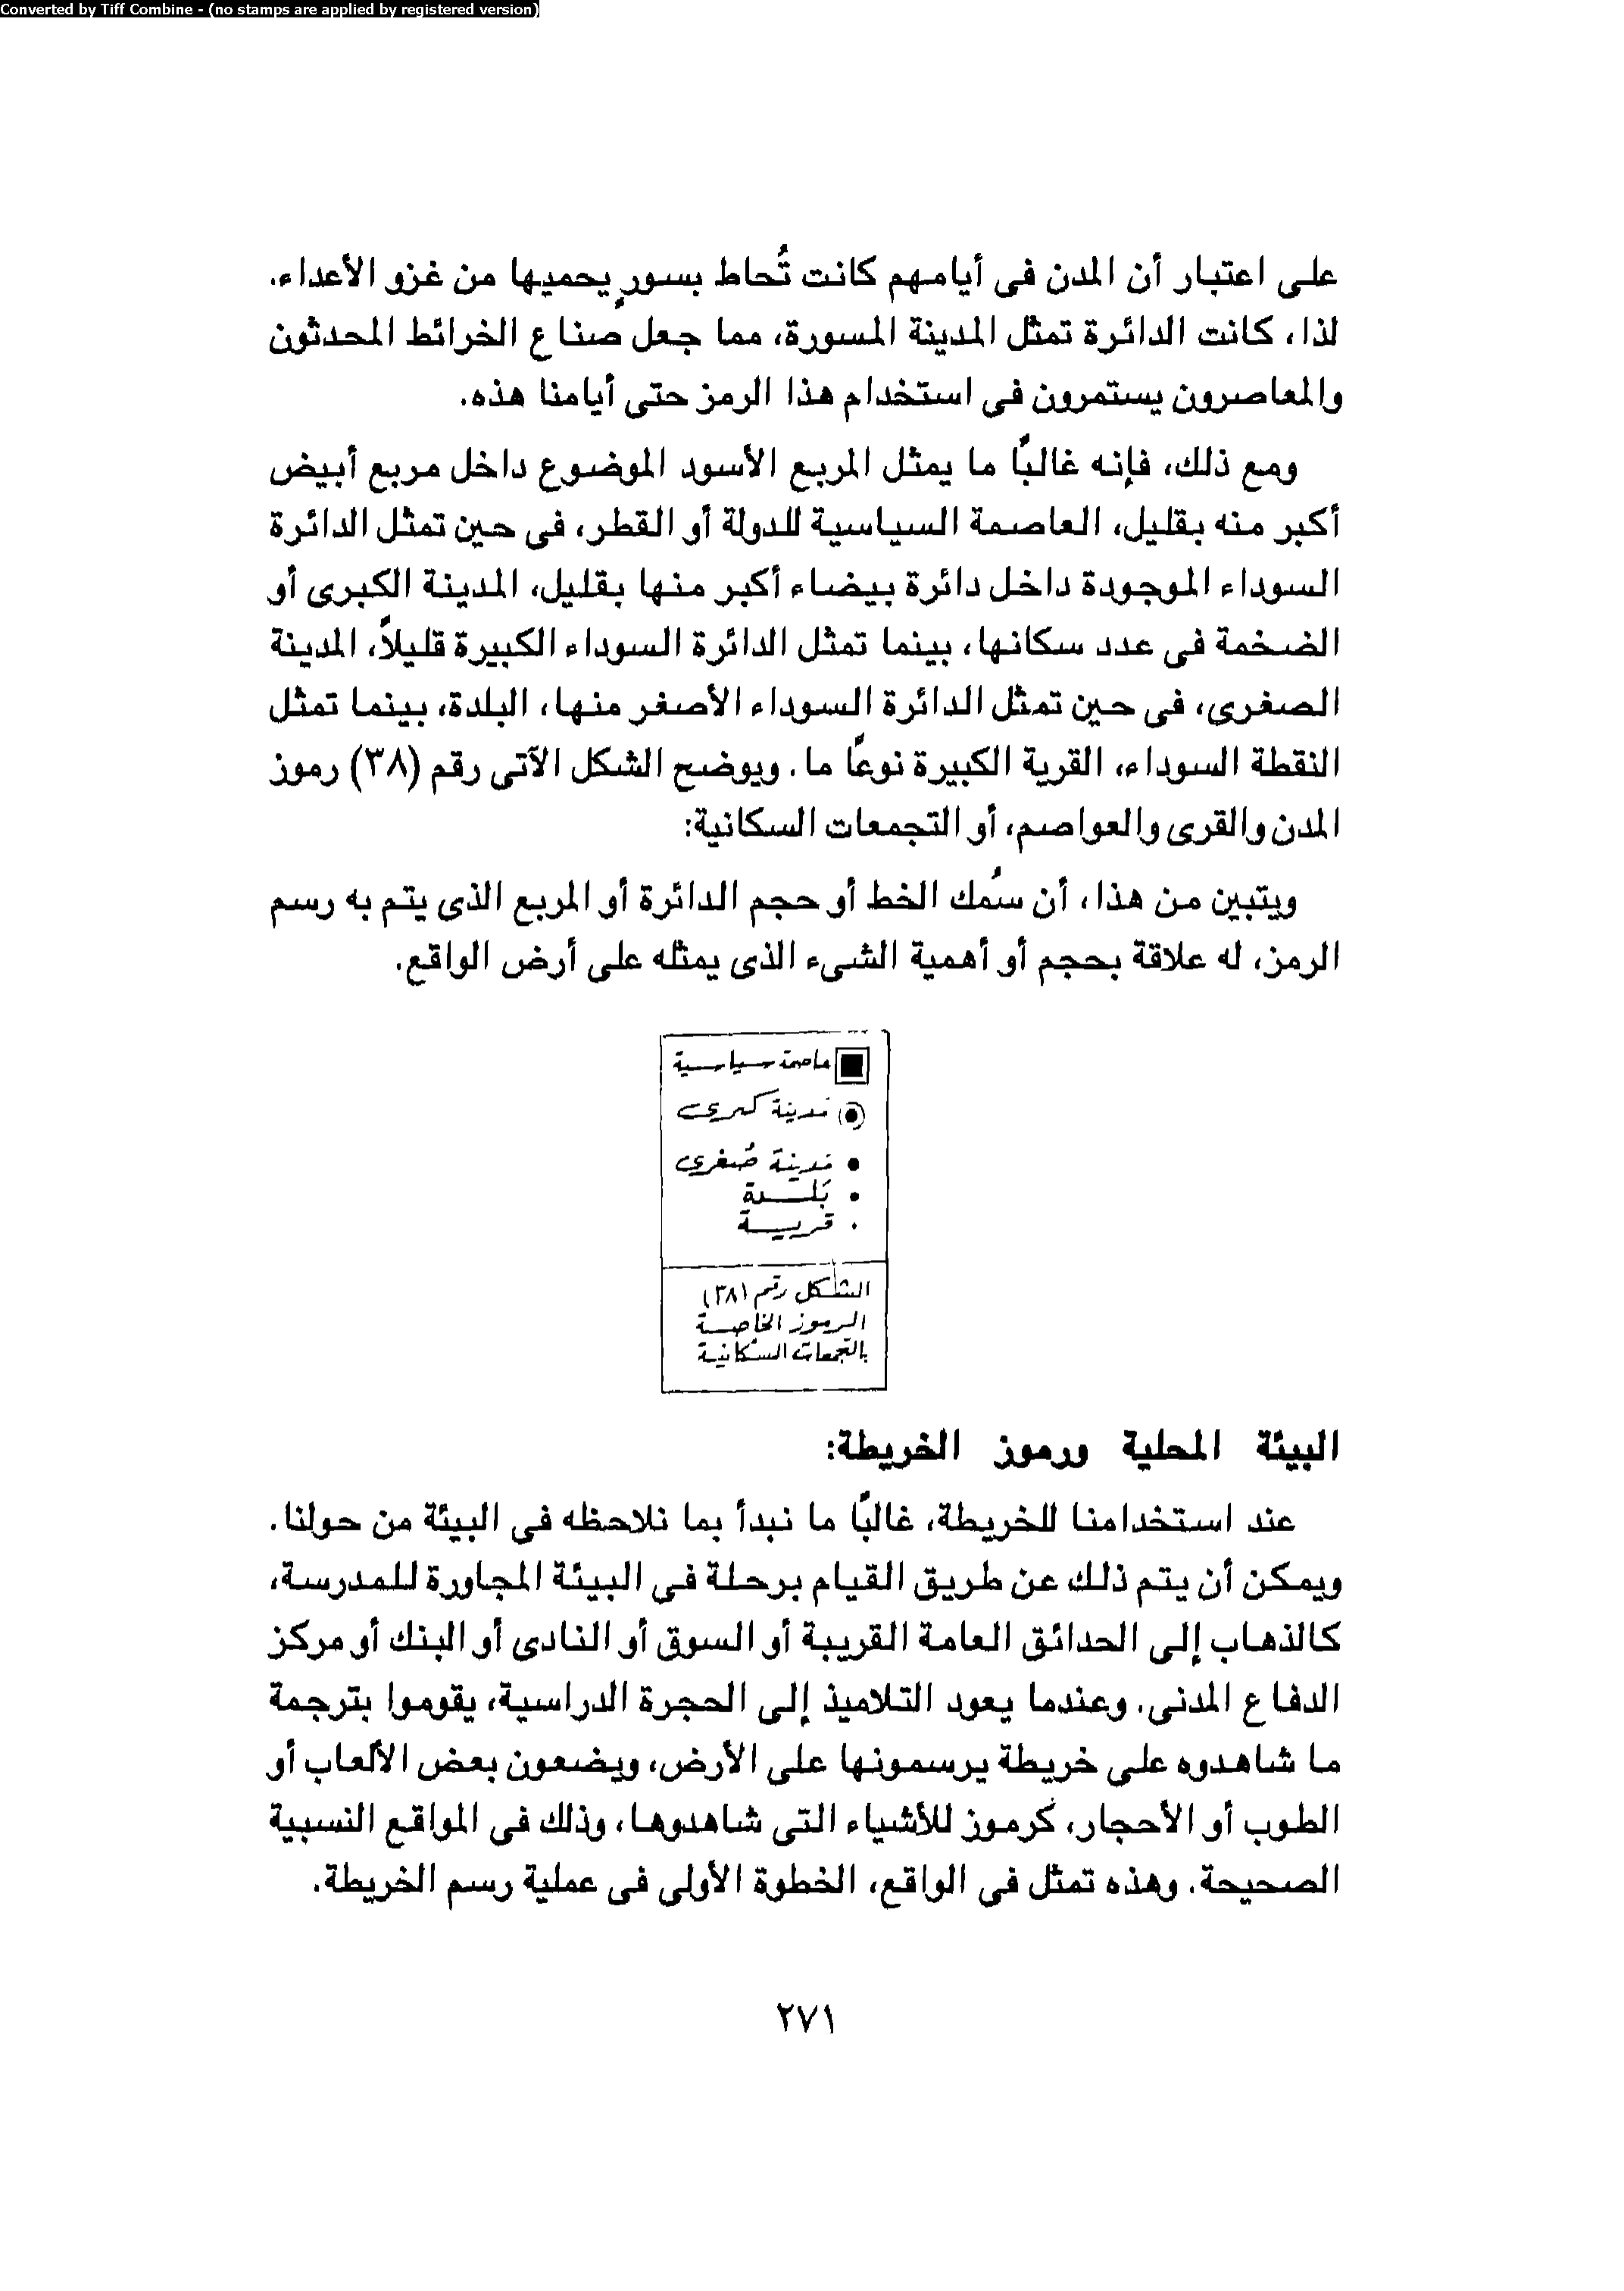 Converted by Tiff Combine - (no stamps are applied by registered version)
على اعتبار أن المدن فى أيامهم كانت تُحاط بسورٍ يحميها من غزو الأعداء.
لذا، كانت الدائرة تمثل المدينة المسورة، مما جعل صناع الخرائط المحدثون
والمعاصرون يستمرون فى استخدام هذا الرمز حتى أيامنا هذه.
ومع ذلك، فإنه غالبًا ما يمثل المربع الأسود الموضوع داخل مربع أبيض
أكبر منه بقليل، العاصمة السياسية للدولة أو القطر، فى حين تمثل الدائرة
السوداء الموجودة داخل دائرة بيضاء أكبر منها بقليل، المدينة الكبرى أو
الضخمة فى عدد سكانها، بينما تمثل الدائرة السوداء الكبيرة قليلاً، المدينة
الصغرى، فى حين تمثل الدائرة السوداء الأصغر منها، البلدة، بينما تمثل
النقطة السوداء، القرية الكبيرة نوعًا ما. ويوضح الشكل الآتى رقم (٣٨) رموز
المدن والقرى والعواصم، أو التجمعات السكانية:
ويتبين من هذا، أن سُمك الخط أو حجم الدائرة أو المربع الذى يتم به رسم
الرمز، له علاقة بحجم أو أهمية الشىء الذى يمثله على أرض الواقع.
عاصمة سياسية
مَدينة كبرى
مَدينة صُغرى
بَلدة
قرية
الشكل رقم (٣٨)
الرموز الخاصة
بالتجمعات السكانية
البيئة المحلية ورموز الخريطة:
عند استخدامنا للخريطة، غالبًا ما نبدأ بما نلاحظه فى البيئة من حولنا.
ويمكن أن يتم ذلك عن طريق القيام برحلة فى البيئة المجاورة للمدرسة،
كالذهاب إلى الحدائق العامة القريبة أو السوق أو النادى أو البنك أو مركز
الدفاع المدنى. وعندما يعود التلاميذ إلى الحجرة الدراسية، يقوموا بترجمة
ما شاهدوه على خريطة يرسمونها على الأرض، ويضعون بعض الألعاب أو
الطوب أو الأحجار، كرموز للأشياء التى شاهدوها، وذلك فى المواقع النسبية
الصحيحة. وهذه تمثل فى الواقع، الخطوة الأولى فى عملية رسم الخريطة.
٢٧١